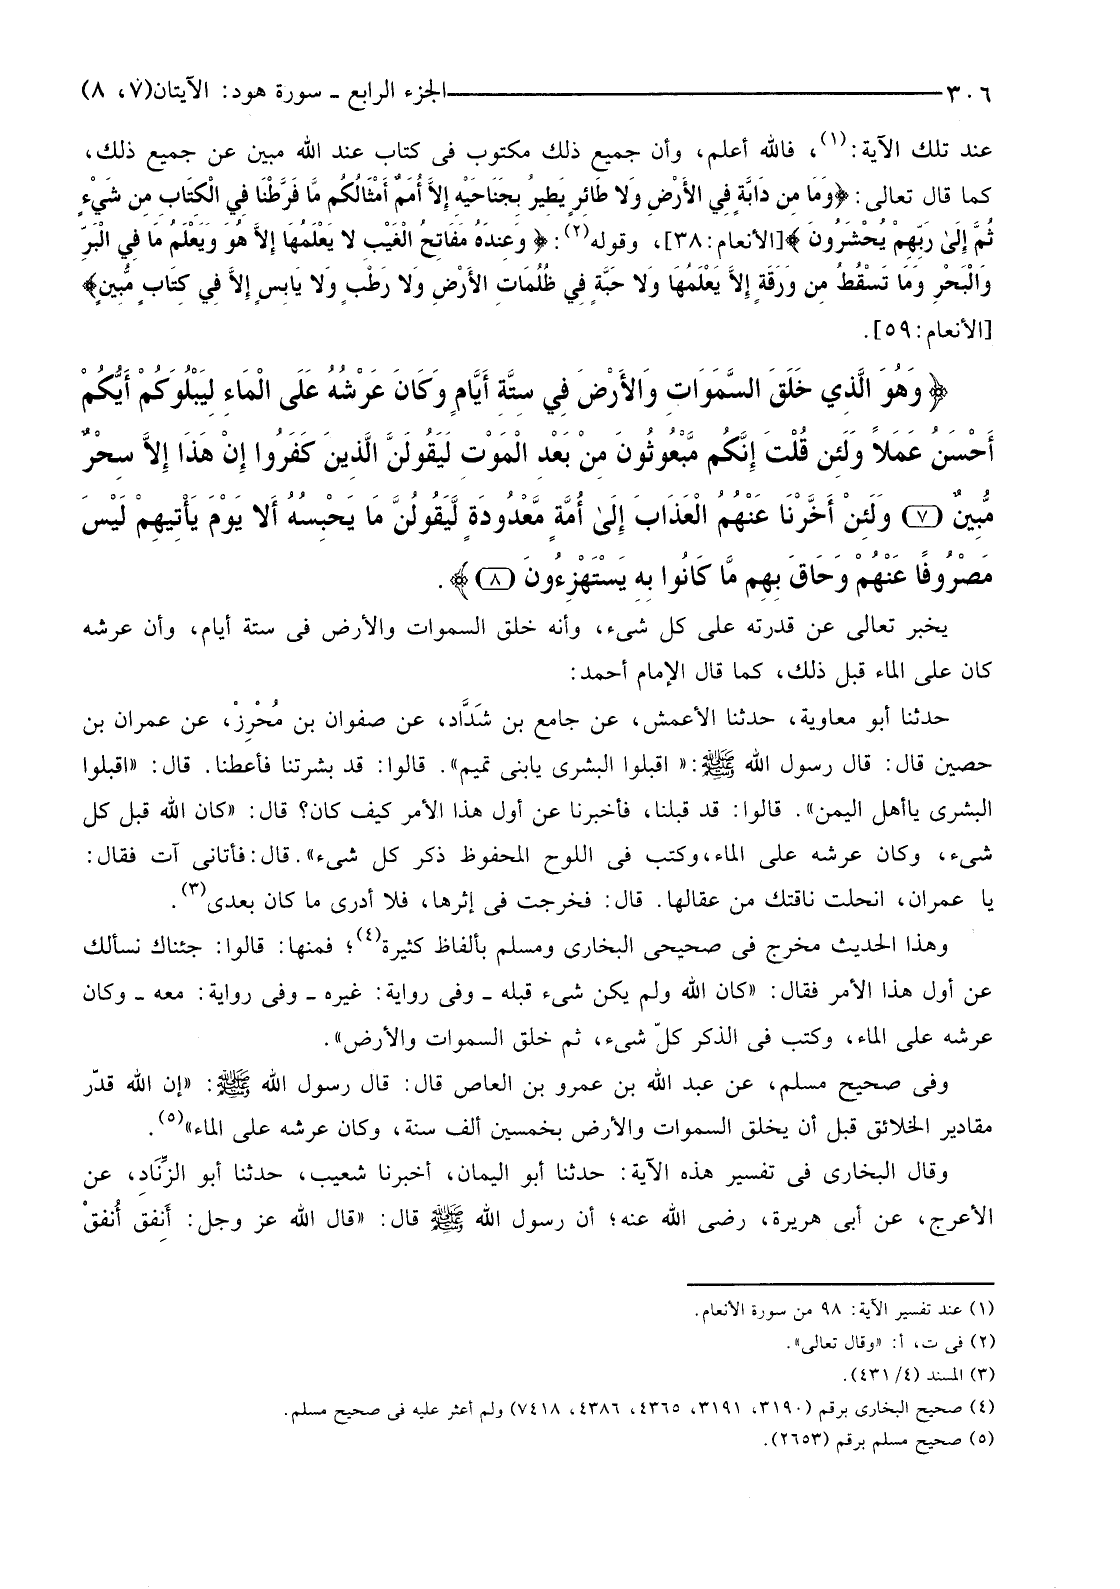 ٣٠٦ ـــــــــ الجزء الرابع ـ سورة هود: الآيتان(٧، ٨)
عند تلك الآية:(١)، فالله أعلم، وأن جميع ذلك مكتوب فى كتاب عند الله مبين عن جميع ذلك،
كما قال تعالى: ﴿وَمَا مِن دَابَّةٍ فِي الأَرْضِ وَلا طَائِرٍ يَطِيرُ بِجَنَاحَيْهِ إِلاَّ أُمَمٌ أَمْثَالُكُم مَّا فَرَّطْنَا فِي الْكِتَابِ مِن شَيْءٍ
ثُمَّ إِلَىٰ رَبِّهِمْ يُحْشَرُونَ ﴾[الأنعام:٣٨]، وقوله(٢): ﴿ وَعِندَهُ مَفَاتِحُ الْغَيْبِ لا يَعْلَمُهَا إِلاَّ هُوَ وَيَعْلَمُ مَا فِي الْبَرِّ
وَالْبَحْرِ وَمَا تَسْقُطُ مِن وَرَقَةٍ إِلاَّ يَعْلَمُهَا وَلا حَبَّةٍ فِي ظُلُمَاتِ الأَرْضِ وَلا رَطْبٍ وَلا يَابِسٍ إِلاَّ فِي كِتَابٍ مُّبِينٍ﴾
[الأنعام:٥٩].
﴿ وَهُوَ الَّذِي خَلَقَ السَّمَوَاتِ وَالأَرْضَ فِي سِتَّةِ أَيَّامٍ وَكَانَ عَرْشُهُ عَلَى الْمَاءِ لِيَبْلُوَكُمْ أَيُّكُمْ
أَحْسَنُ عَمَلاً وَلَئِن قُلْتَ إِنَّكُم مَّبْعُوثُونَ مِنْ بَعْدِ الْمَوْتِ لَيَقُولَنَّ الَّذِينَ كَفَرُوا إِنْ هَذَا إِلاَّ سِحْرٌ
مُّبِينٌ (٧) وَلَئِنْ أَخَّرْنَا عَنْهُمُ الْعَذَابَ إِلَىٰ أُمَّةٍ مَّعْدُودَةٍ لَّيَقُولُنَّ مَا يَحْبِسُهُ أَلا يَوْمَ يَأْتِيهِمْ لَيْسَ
مَصْرُوفًا عَنْهُمْ وَحَاقَ بِهِم مَّا كَانُوا بِهِ يَسْتَهْزِءُونَ (٨)﴾.
يخبر تعالى عن قدرته على كل شىء، وأنه خلق السموات والأرض فى ستة أيام، وأن عرشه
كان على الماء قبل ذلك، كما قال الإمام أحمد:
حدثنا أبو معاوية، حدثنا الأعمش، عن جامع بن شَدَّاد، عن صفوان بن مُحْرِزْ، عن عمران بن
حصين قال: قال رسول الله ﷺ:« اقبلوا البشرى يابنى تميم». قالوا: قد بشرتنا فأعطنا. قال: «اقبلوا
البشرى ياأهل اليمن». قالوا: قد قبلنا، فأخبرنا عن أول هذا الأمر كيف كان؟ قال: «كان الله قبل كل
شىء، وكان عرشه على الماء،وكتب فى اللوح المحفوظ ذكر كل شىء».قال:فأتانى آت فقال:
يا عمران، انحلت ناقتك من عقالها. قال: فخرجت فى إثرها، فلا أدرى ما كان بعدى(٣).
وهذا الحديث مخرج فى صحيحى البخارى ومسلم بألفاظ كثيرة(٤)؛ فمنها: قالوا: جئناك نسألك
عن أول هذا الأمر فقال: «كان الله ولم يكن شىء قبله ـ وفى رواية: غيره ـ وفى رواية: معه ـ وكان
عرشه على الماء، وكتب فى الذكر كلّ شىء، ثم خلق السموات والأرض».
وفى صحيح مسلم، عن عبد الله بن عمرو بن العاص قال: قال رسول الله ﷺ: «إن الله قدّر
مقادير الخلائق قبل أن يخلق السموات والأرض بخمسين ألف سنة، وكان عرشه على الماء»(٥).
وقال البخارى فى تفسير هذه الآية: حدثنا أبو اليمان، أخبرنا شعيب، حدثنا أبو الزِّنَادِ، عن
الأعرج، عن أبى هريرة، رضى الله عنه؛ أن رسول الله ﷺ قال: «قال الله عز وجل: أَنفِق أُنفقْ
(١) عند تفسير الآية: ٩٨ من سورة الأنعام.
(٢) فى ت، أ: «وقال تعالى».
(٣) المسند (٤/ ٤٣١).
(٤) صحيح البخارى برقم (٣١٩٠، ٣١٩١، ٤٣٦٥، ٤٣٨٦، ٧٤١٨) ولم أعثر عليه فى صحيح مسلم.
(٥) صحيح مسلم برقم (٢٦٥٣).